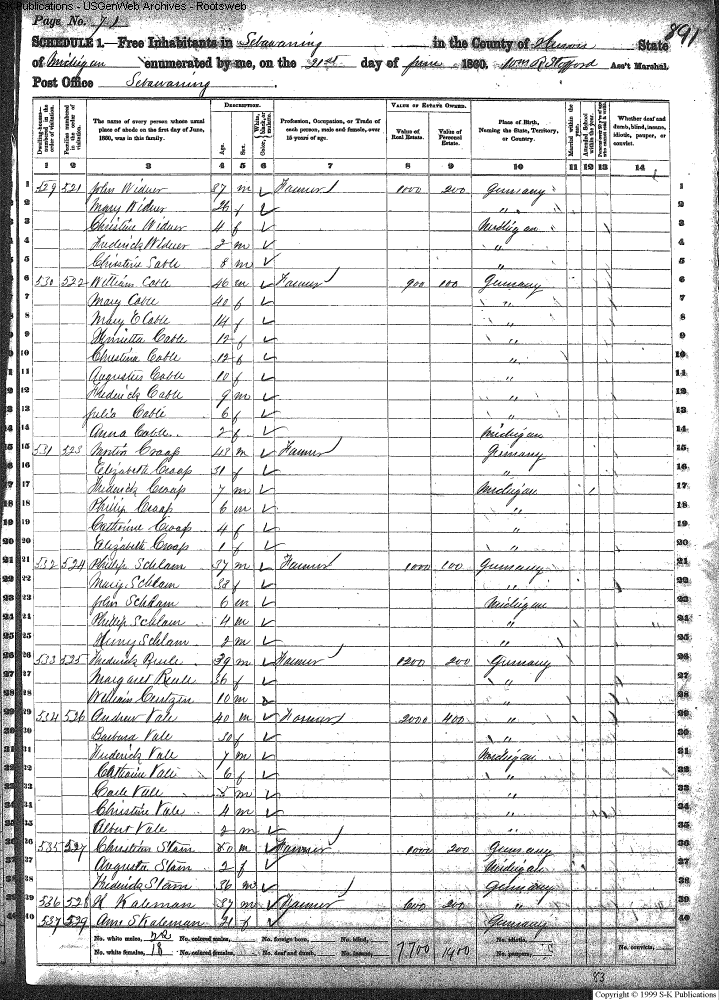 S-K Publications - USGenWeb Archives - Rootsweb
Page No. 71
891
SCHEDULE 1.—Free Inhabitants in Sebawaing in the County of Huron State
of Michigan enumerated by me, on the 21st day of June 1860. Ass't Marshal.
Post Office Sebawaing
Dwelling-houses—numbered in the order of visitation. Families numbered in the order of visitation. The name of every person whose usual place of abode on the first day of June, 1860, was in this family. DESCRIPTION. Age. Sex. Color, White, black, or mulatto. Profession, Occupation, or Trade of each person, male and female, over 15 years of age. VALUE OF ESTATE OWNED. Value of Real Estate. Value of Personal Estate. Place of Birth, Naming the State, Territory, or Country. Married within the year. Attended School within the year. Persons over 20 y'rs of age who cannot read & write. Whether deaf and dumb, blind, insane, idiotic, pauper, or convict.
1 2 3 4 5 6 7 8 9 10 11 12 13 14
1 529 521 John Widner 37 m Farmer 1000 200 Germany 1
2 Mary Widner 26 f " 2
3 Christine Widner 4 f Michigan 3
4 Frederick Widner 2 m " 4
5 Christine 8 m " 5
6 530 522 William Cable 46 m Farmer 900 100 Germany 6
7 Mary Cable 40 f " 7
8 Mary E Cable 14 f " 8
9 Henrietta Cable 12 f " 9
10 Christina Cable 12 f " 10
11 Augustus Cable 10 f " 11
12 Frederick Cable 9 m " 12
13 Julia Cable 6 f " 13
14 Anna Cable 2 f Michigan 14
15 531 523 Martin Croap 43 m Farmer Germany 15
16 Elizabeth Croap 31 f " 16
17 Frederick Croap 7 m Michigan 17
18 Phillip Croap 6 m " 18
19 Catharine Croap 4 f " 19
20 Elizabeth Croap 1 f " 20
21 532 524 Phillip Schlam 37 m Farmer 1000 100 Germany 21
22 Mary Schlam 38 f " 22
23 John Schlam 6 m Michigan 23
24 Phillip Schlam 4 m " 24
25 Henry Schlam 2 m " 25
26 533 525 Frederick Reule 39 m Farmer 1200 200 Germany 26
27 Margaret Reule 36 f " 27
28 William 10 m " 28
29 534 526 Andrew Vale 40 m Farmer 2000 400 " 29
30 Barbara Vale 30 f " 30
31 Frederick Vale 7 m Michigan 31
32 Catharine Vale 6 f " 32
33 Carle Vale 5 m " 33
34 Christine Vale 4 m " 34
35 Albert Vale 2 m " 35
36 535 527 Christian Stam 50 m Farmer 1000 200 Germany 36
37 Augusta Stam 2 f Michigan 37
38 Frederick Stam 36 m Germany 38
39 536 528 Kaleman 37 m Farmer 600 200 " 39
40 537 529 Kaleman 21 f Germany 40
No. white males, 22 No. colored males, No. foreign born, No. blind, 7700 1400 No. idiotic,
No. white females, 18 No. colored females, No. deaf and dumb, No. insane, No. paupers, No. convicts,
83
Copyright © 1999 S-K Publications